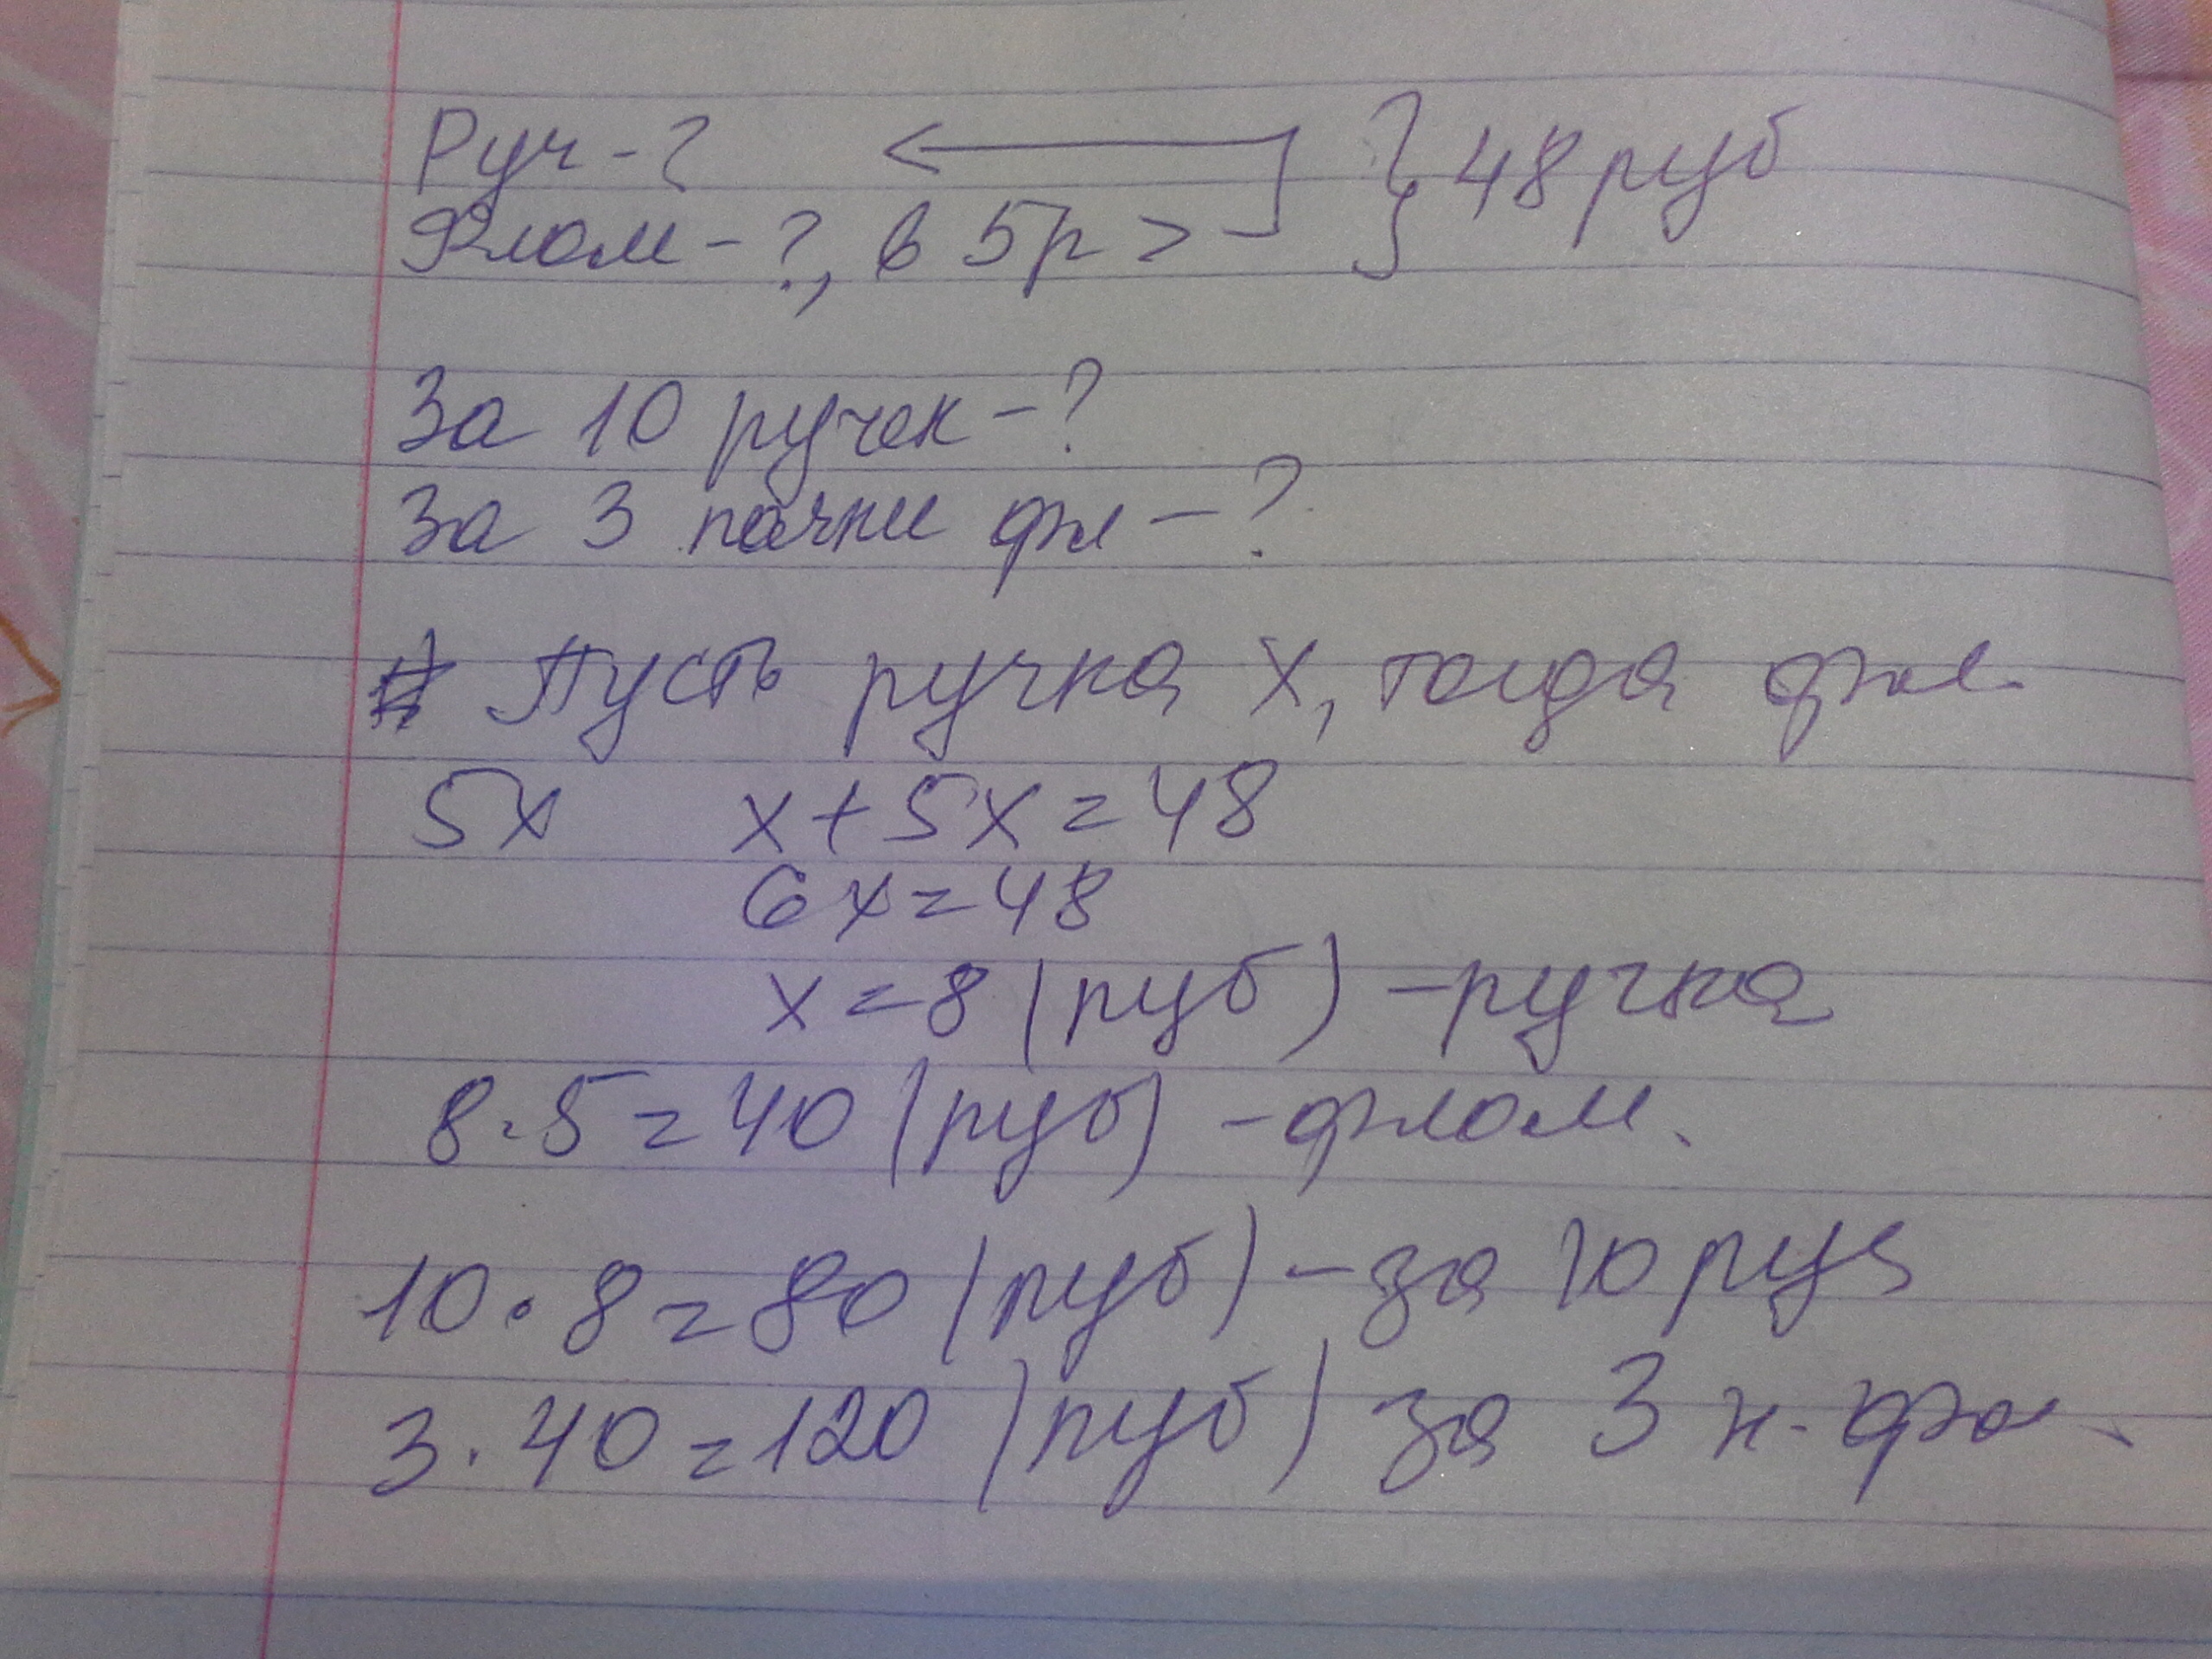 Руч - ?
Флом - ?, в 5р > } 48 руб
За 10 ручек - ?
За 3 пачки фл - ?
Пусть ручка x, тогда фл.
5x x+5x=48
6x=48
x=8 (руб) - ручка
8·5=40 (руб) - флом.
10·8=80 (руб) - за 10 руч
3·40=120 (руб) за 3 п. фл.